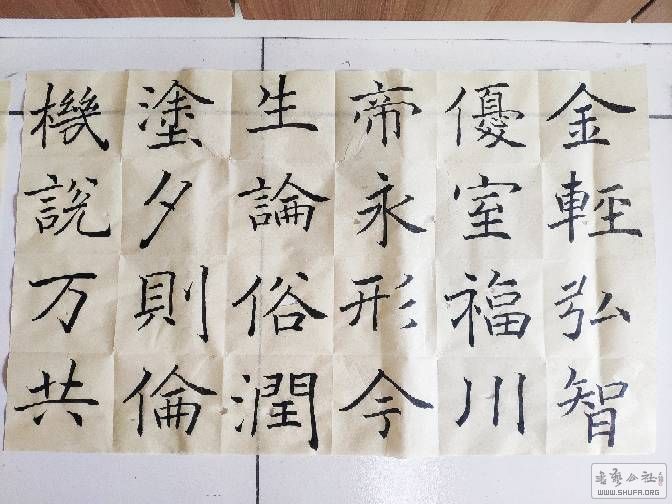 金輕弘智
優室福川
帝永形今
生論俗潤
塗夕則倫
機説万共
WWW.SHUFA.ORG